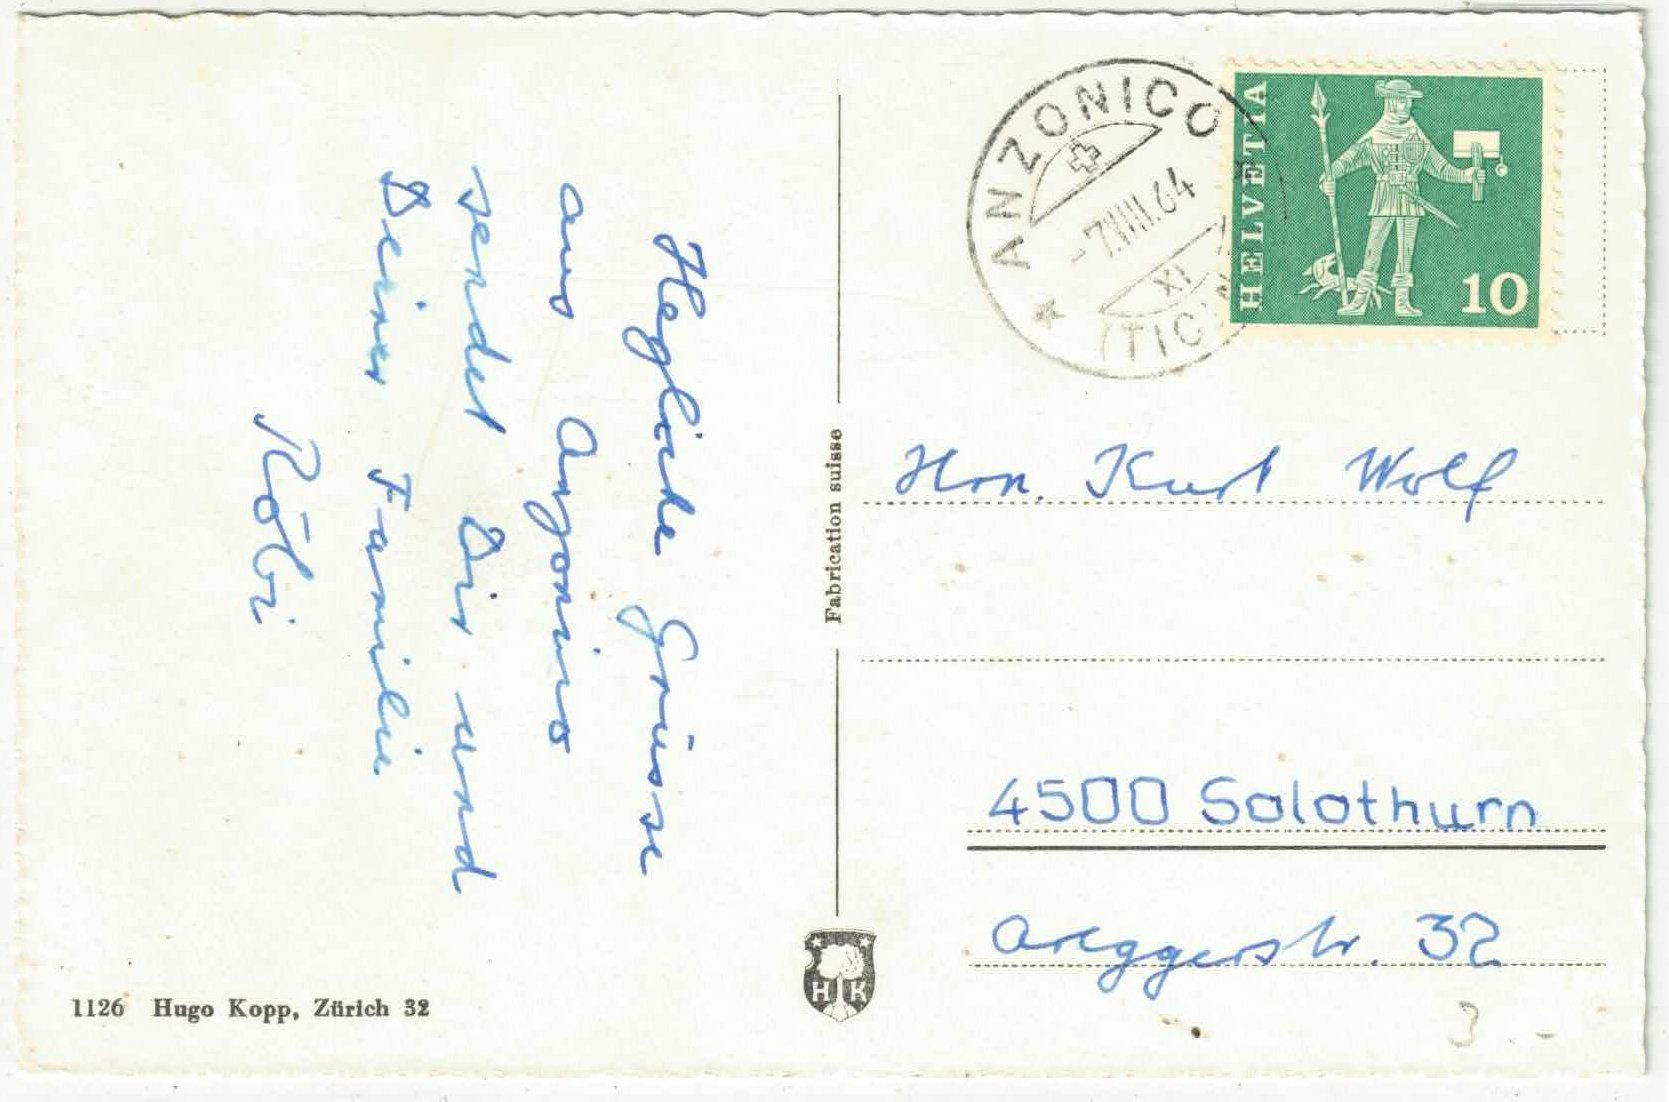 Hegliche Grüsse
aus Anzonico
sendet Dir und
Deiner Familie
Röbi
1126 Hugo Kopp, Zürich 32
Fabrication suisse
H K
ANZONICO
-7.VIII.64
XI
(TICI
HELVETIA
10
Hrn. Kurt Wolf
4500 Solothurn
Areggerstr. 32
3.-